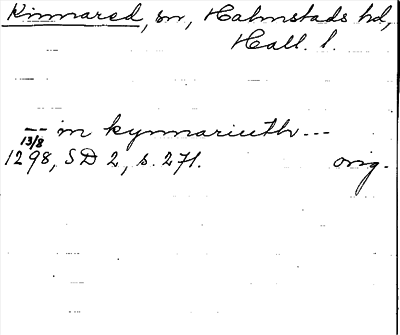 Kinnared, sn, Halmstads hd,
Hall. l.
-- in kynnariuth ---
13/8
1298, SD 2, s. 271. orig.